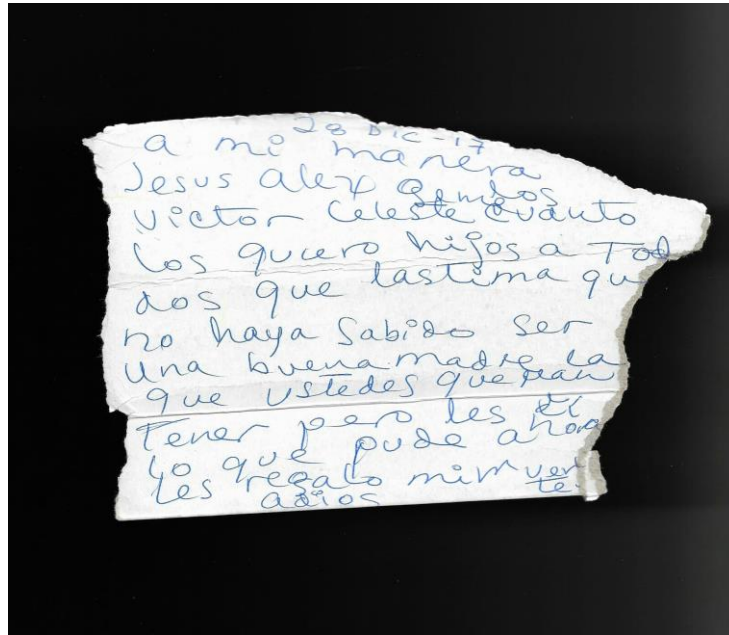 28 DIC-17
a mi manera
Jesus alex Gemelos
victor Celeste cuanto
los quiero hijos a Tod
dos que lastima qu
no haya Sabido Ser
una buena madre La
que ustedes querian
Tener pero les di
lo que pude ahora
les regalo mi muer
te.
adios